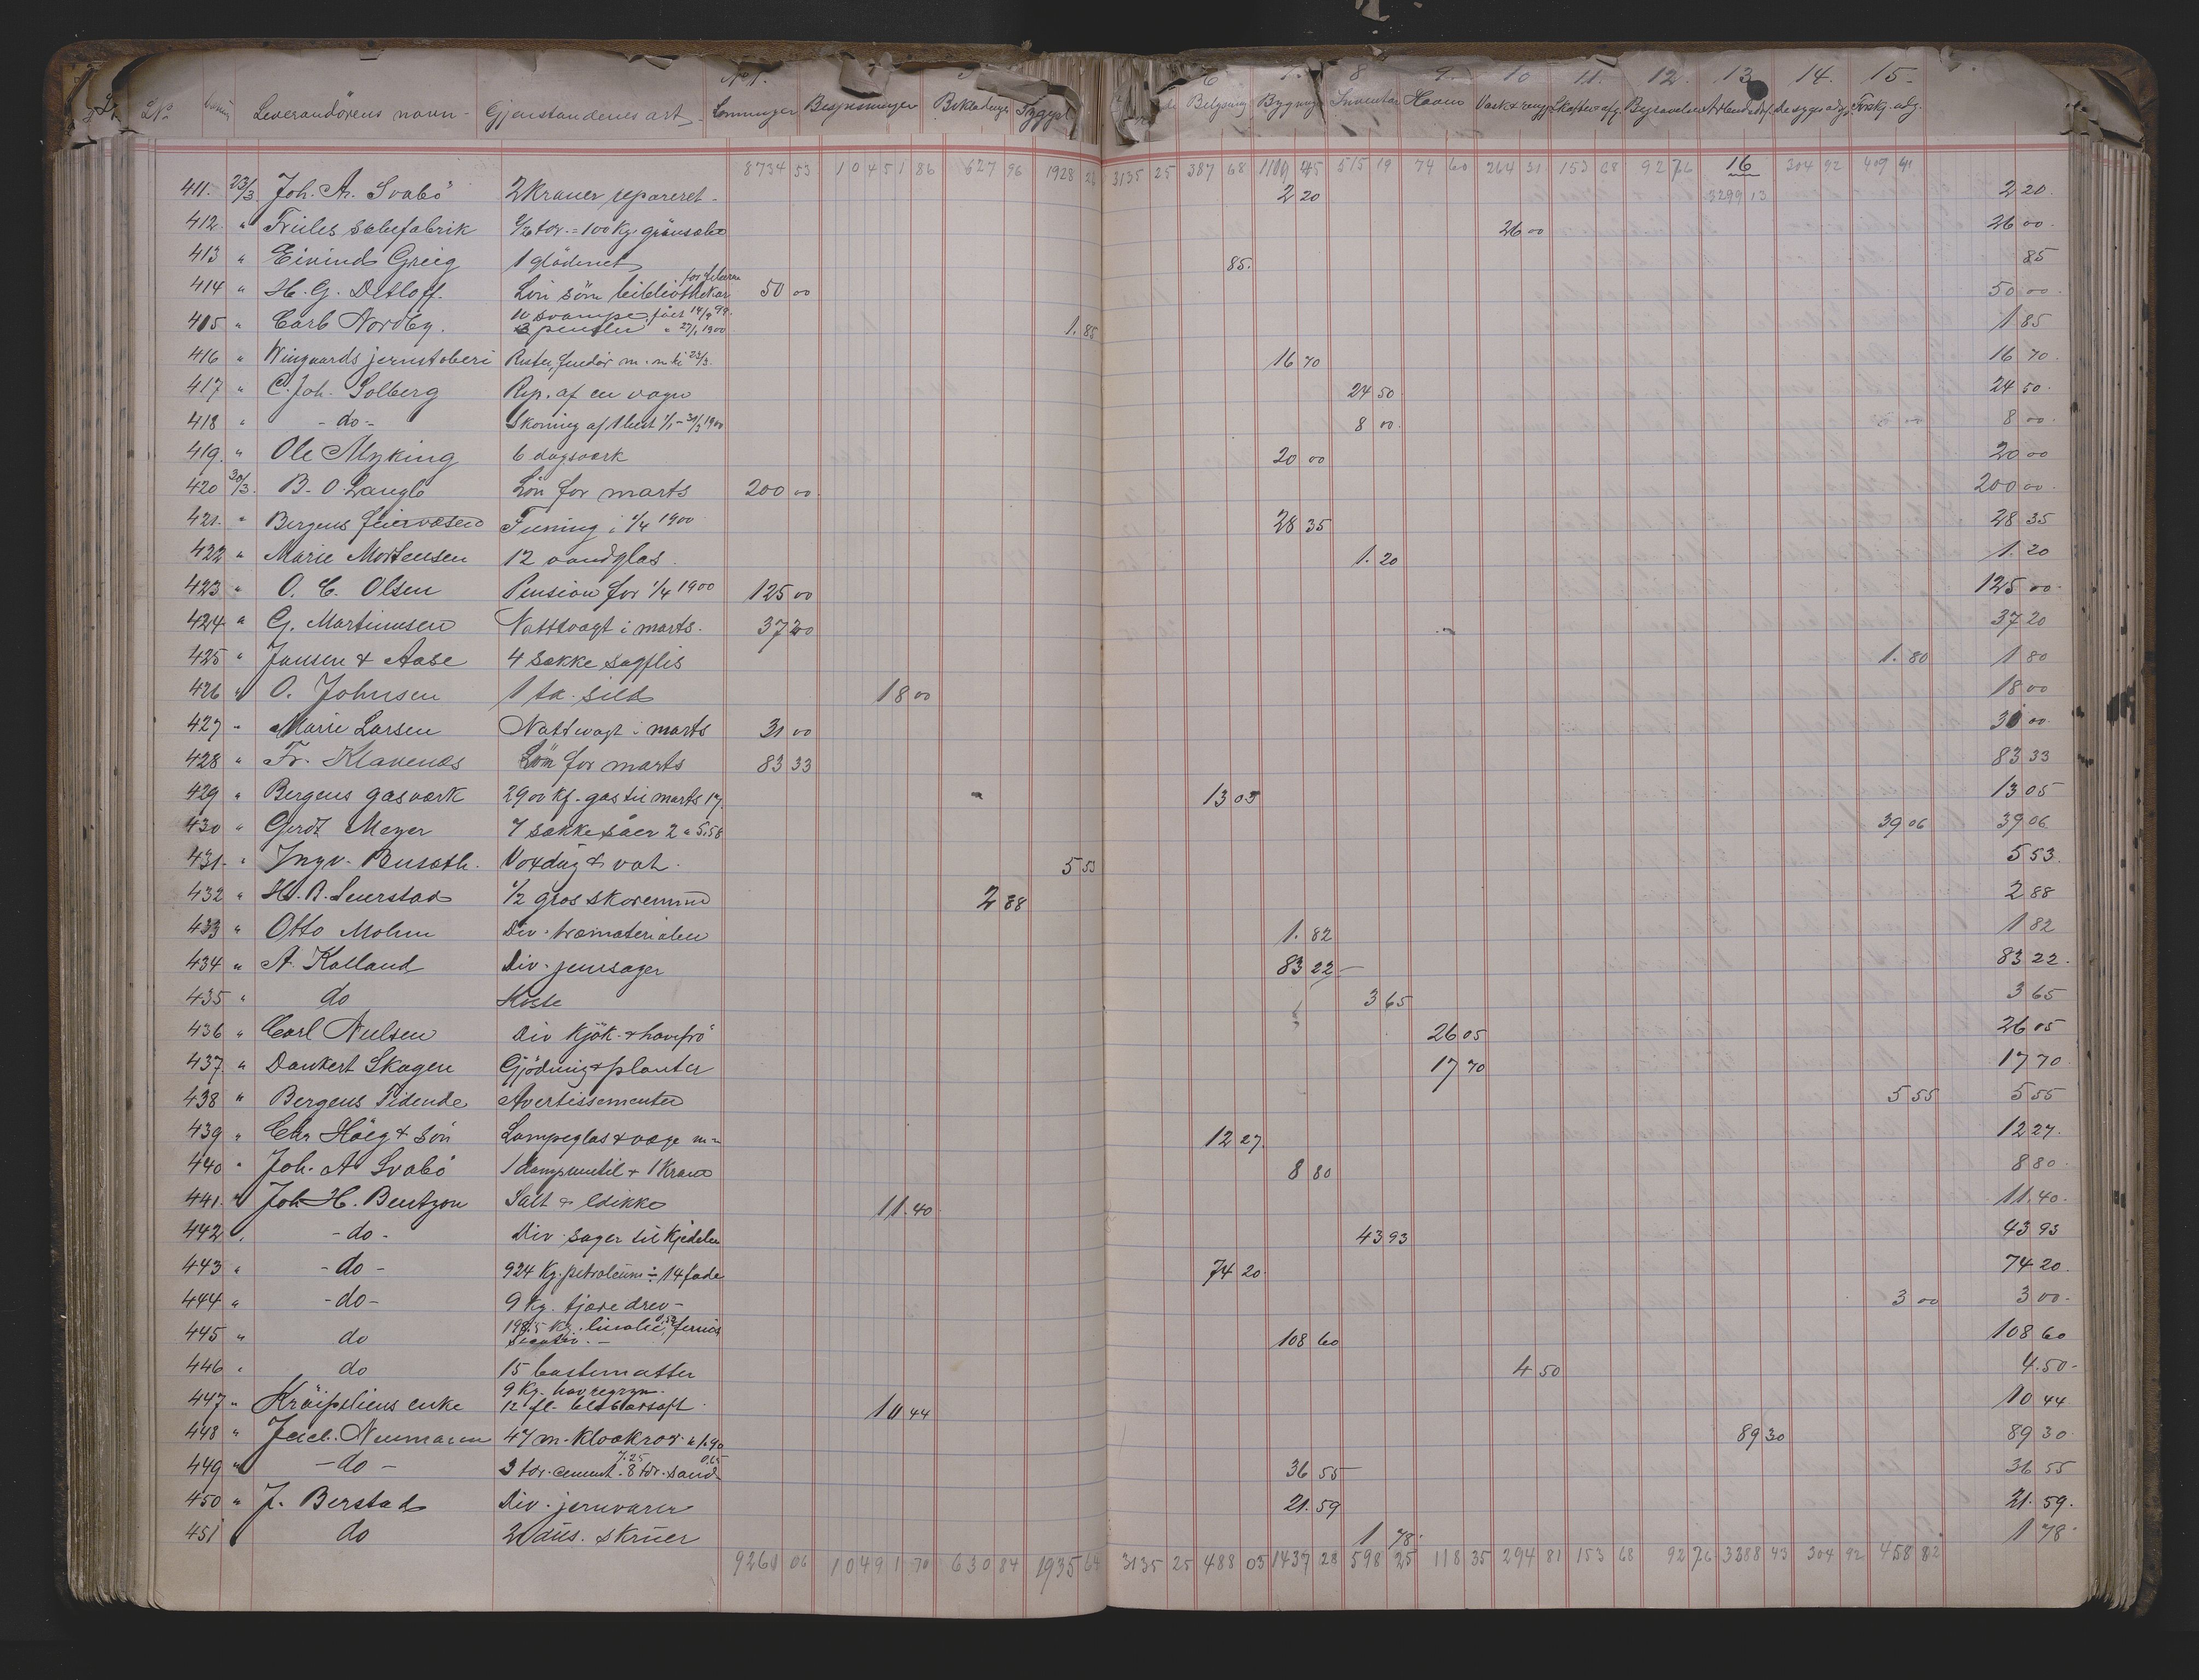 No 1. 6 7. 8 9. 10 11. 12. 13 14. 15.
L.No Leverandörens navn - Gjenstandenes art Lönninger Bespisninger Beklædninger Sygepl Belysning Bygning Inventar Haven Vask & rengj. Skatter & afg. Begravelser Arbeidsdrf.
8734 53 10451 86 627 96 1928 26 3135 25 387 68 1109 45 515 19 74 60 264 31 153 68 92 76 16 304 92 409 41
3299 13
411. 23/3 Joh. A. Svabö 2 Kraner repareret - 2 20 2 20
412 " Friiles sæbefabrik 1/2 tdr. = 100 Kg. grönsæbe 26 00 26 00
413 " Eivind Grieg 1 glödenet 85. 85
414 " H. G. Detloff. Lön som bibliothekar for februar 50 00 50 00
415 " Carl Nordby. 10 svampe, fået 14/9 99.
3 pensler " 27/1 1900 1. 85 1 85
416 " Wingaards jernstöberi Rister, m. m. til 23/3. 16 70 16 70
417 " C. Joh. Solberg Rep. af en vogn 24 50 24 50
418 " - do - Skoning af 1 hest 1/1 - 31/3 1900 8 00 8 00
419. " Ole Myking 6 dagsværk 20 00 20 00
420 30/3. B. O. Langlo Lön for marts 200 00 200 00
421. " Bergens feiervæsen Feining i 1/4 1900 28 35 28 35
422 " Marie Mortensen 12 vandglas. 1. 20 1. 20
423 " O. C. Olsen Pension for 1/4 1900 125 00 125 00
424 " G. Martinusen Nattevagt i marts. 37 20 37 20
425 " Jansen & Aase 4 sække sagflis 1. 80 1 80
426 " O. Johnsen 1 tn. sild 18 00 18 00
427 " Marie Larsen Nattevagt i marts 31 00 31 00
428 " Fr. Klavenæs Lön for marts 83 33 83 33
429 " Bergens gasværk 2900 Kf. gas til marts 17. 13 05 13 05
430 " Gerdt Meyer 7 sække 2 a 5.58 39 06 39 06
431. " Ingv. Voxdug & vat. 5 53 5 53.
432 " H. R. 1/2 gros skoremme 2 88 2 88
433 " Otto Mohn Div. træmaterialer 1. 82 1 82
434 " A. Kolland Div. jernsager 83 22 - 83 22.
435 " do Koste 3 65 3 65
436 " Carl Nielsen Div Kjök. & havefrö 26 05 26 05
437 " Dankert Skagen Gjödning & planter 17 70 17 70
438 " Bergens Tidende Avertissementer 5 55 5 55
439 " Chr Höeg & Sön Lampeglas & væge m - 12 27. 12 27.
440 " Joh. A. Svabö 1 dampventil + 1 Kran 8 80 8 80.
441. " Joh. H. Bentzon Salt & eddikke 11. 40 11. 40.
442 " - do - Div. sager til Kjedelen 43 93 43 93
443 " - do - 924 Kg. petroleum ÷ 14 fade 74 20. 74 20.
444 " - do - 9 Kg. tjæredrev - 3 00 3 00.
445 " do 198.5 Kg. linolie, fernis
sicativ. - 108 60 108 60
446 " do 15 bastematter 4 50 4. 50 -
447 " Kröipeliens enke 9 Kg. havregryn.
12 fl. blåbærsaft. 10 44 10 44
448 " Neumann 47 m. a 1.90 89 30 89 30.
449 " - do - 3 tdr. cement 7.25 - 8 tdr. sand 36 55 36 55
450 " J. Berstad Div. jernvarer 21. 59 21. 59.
451 do 2 dus. skruer 1 78. 1 78.
9261 06 10491 70 630 84 1935 64 3135 25 488 05 1437 28 598 25 118 35 294 81 153 68 92 76 3388 43 304 92 458 82